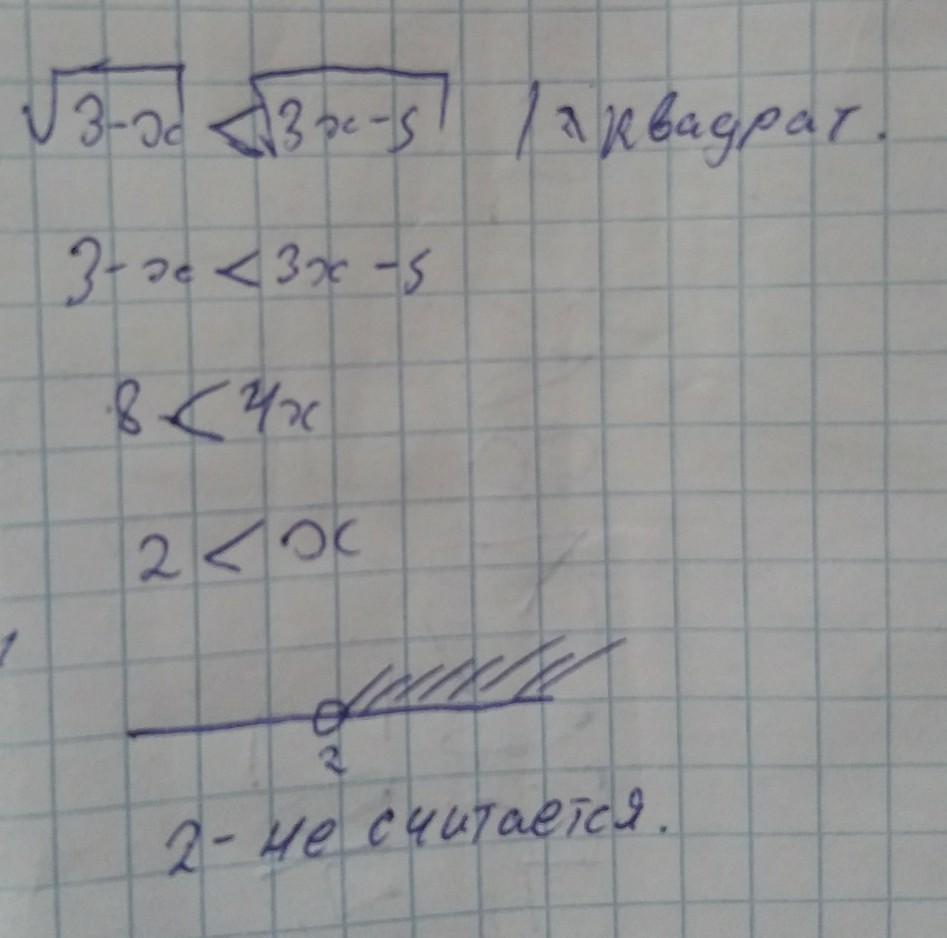 √3-x < √3x-5 / в квадрат.
3-x < 3x-5
8 < 4x
2 < x
2
2-не считается.